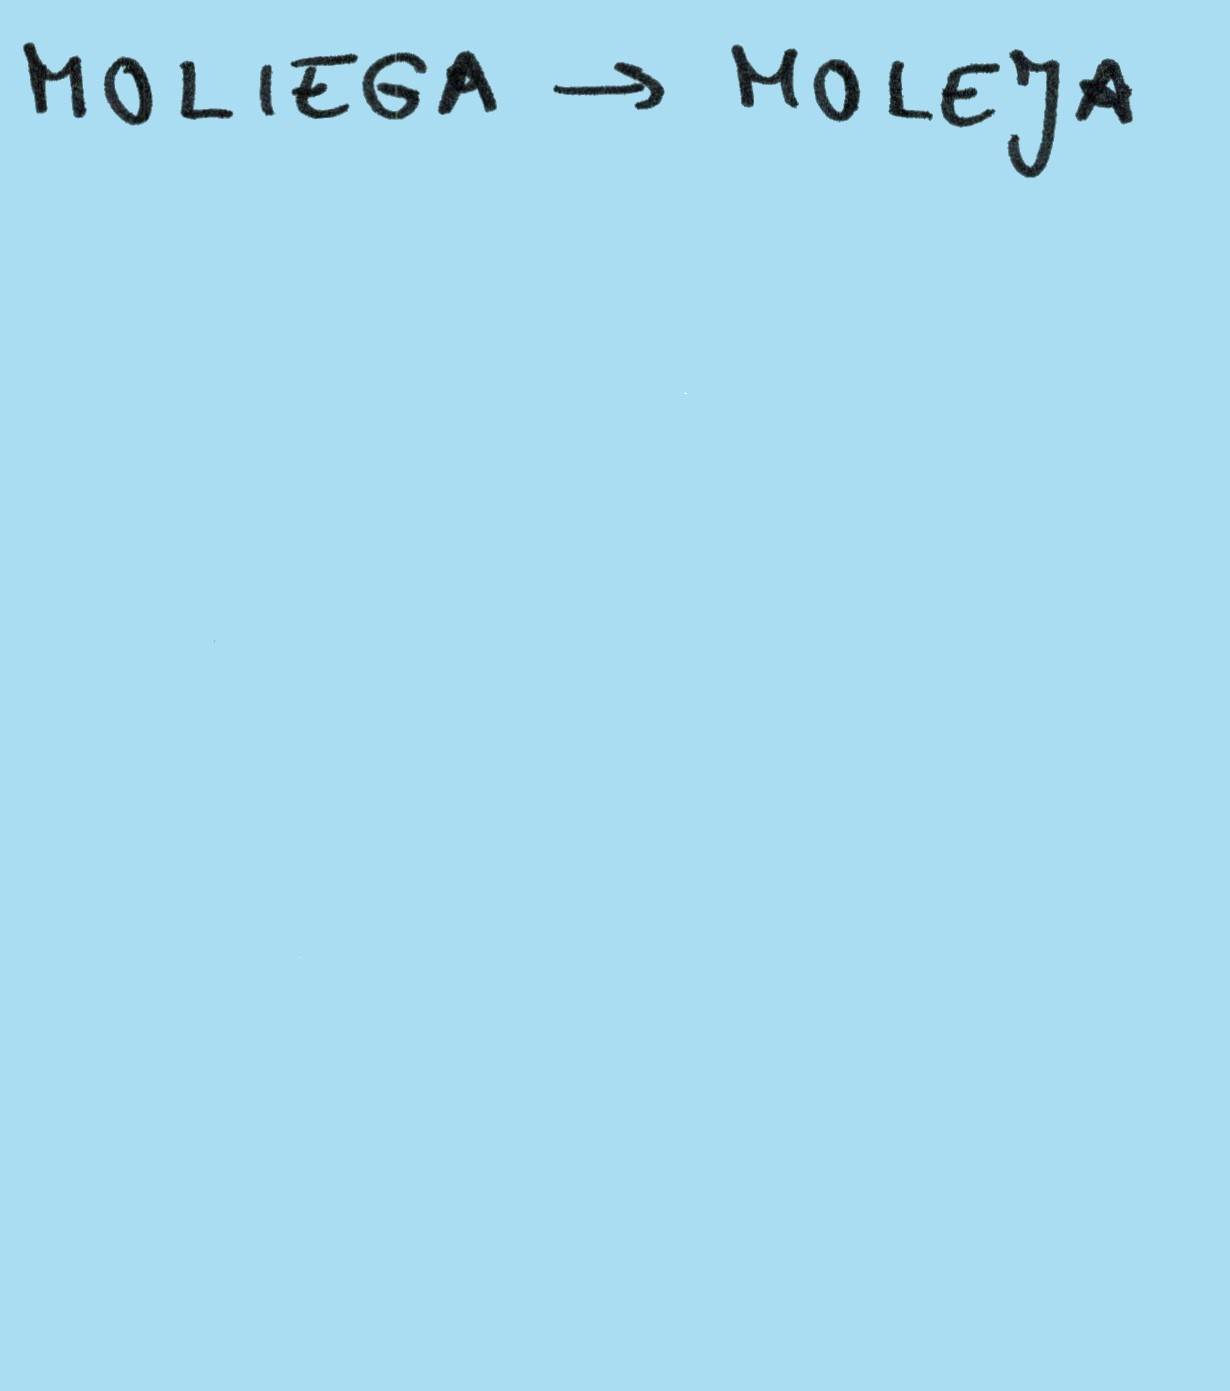 MOLIEGA → MOLEJA